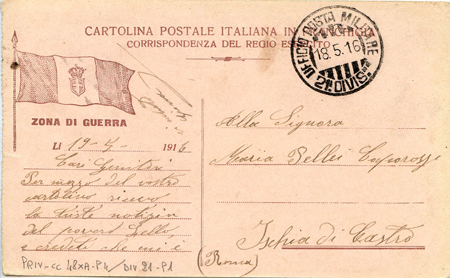 CARTOLINA POSTALE ITALIANA IN FRANCHIGIA
CORRISPONDENZA DEL REGIO ESERCITO
UFFICIO POSTA MILITARE
18.5.16
21ª DIVISne
ZONA DI GUERRA
LI 19-4- 1916
Cari Genitori
Per mezzo del vostro
cartolino ricevo
la triste notizia
del povero Lello,
e credeti che mi è
Alla Signora
Maria Pellei Caparozzi
Ischia di Castro
(Roma)
PRIV-CC 48XA-P4/DIV 21-P1